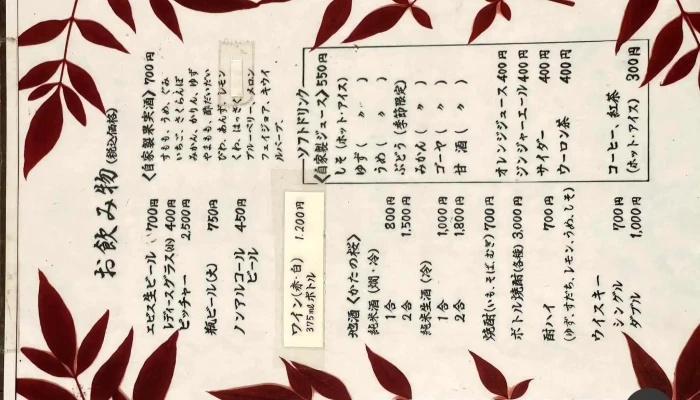 お飲み物（税込価格）
エビス生ビール 700円
レディースグラス(小) 400円
ピッチャー 2,500円
瓶ビール(大) 750円
ノンアルコールビール 450円
ワイン(赤・白) 1,200円
375mlボトル
地酒〈かたの桜〉
純米酒(燗・冷)
1合 800円
2合 1,500円
純米生酒(冷)
1合 1,000円
2合 1,800円
焼酎(いも、そば、むぎ) 700円
ボトル焼酎(各種) 3,000円
酎ハイ 700円
(ゆず、すだち、レモン、うめ、しそ)
ウイスキー
シングル 700円
ダブル 1,000円
〈自家製果実酒〉 700円
すもも、うめ、ぐみ
いちご、さくらんぼ
みかん、かりん、ゆず
やまもも、酔だいだい
びわ、あんず、レモン
くわ、はっさく
ブルーベリー、メロン
フェイジョア、キウイ
ルバーブ、
ソフトドリンク
〈自家製ジュース〉 550円
しそ(ホット・アイス)
ゆず( 〃 )
うめ( 〃 )
ぶどう(季節限定)
みかん( 〃 )
ゴーヤ( 〃 )
甘酒( 〃 )
オレンジジュース 400円
ジンジャーエール 400円
サイダー 400円
ウーロン茶 400円
コーヒー、紅茶 300円
(ホット・アイス)